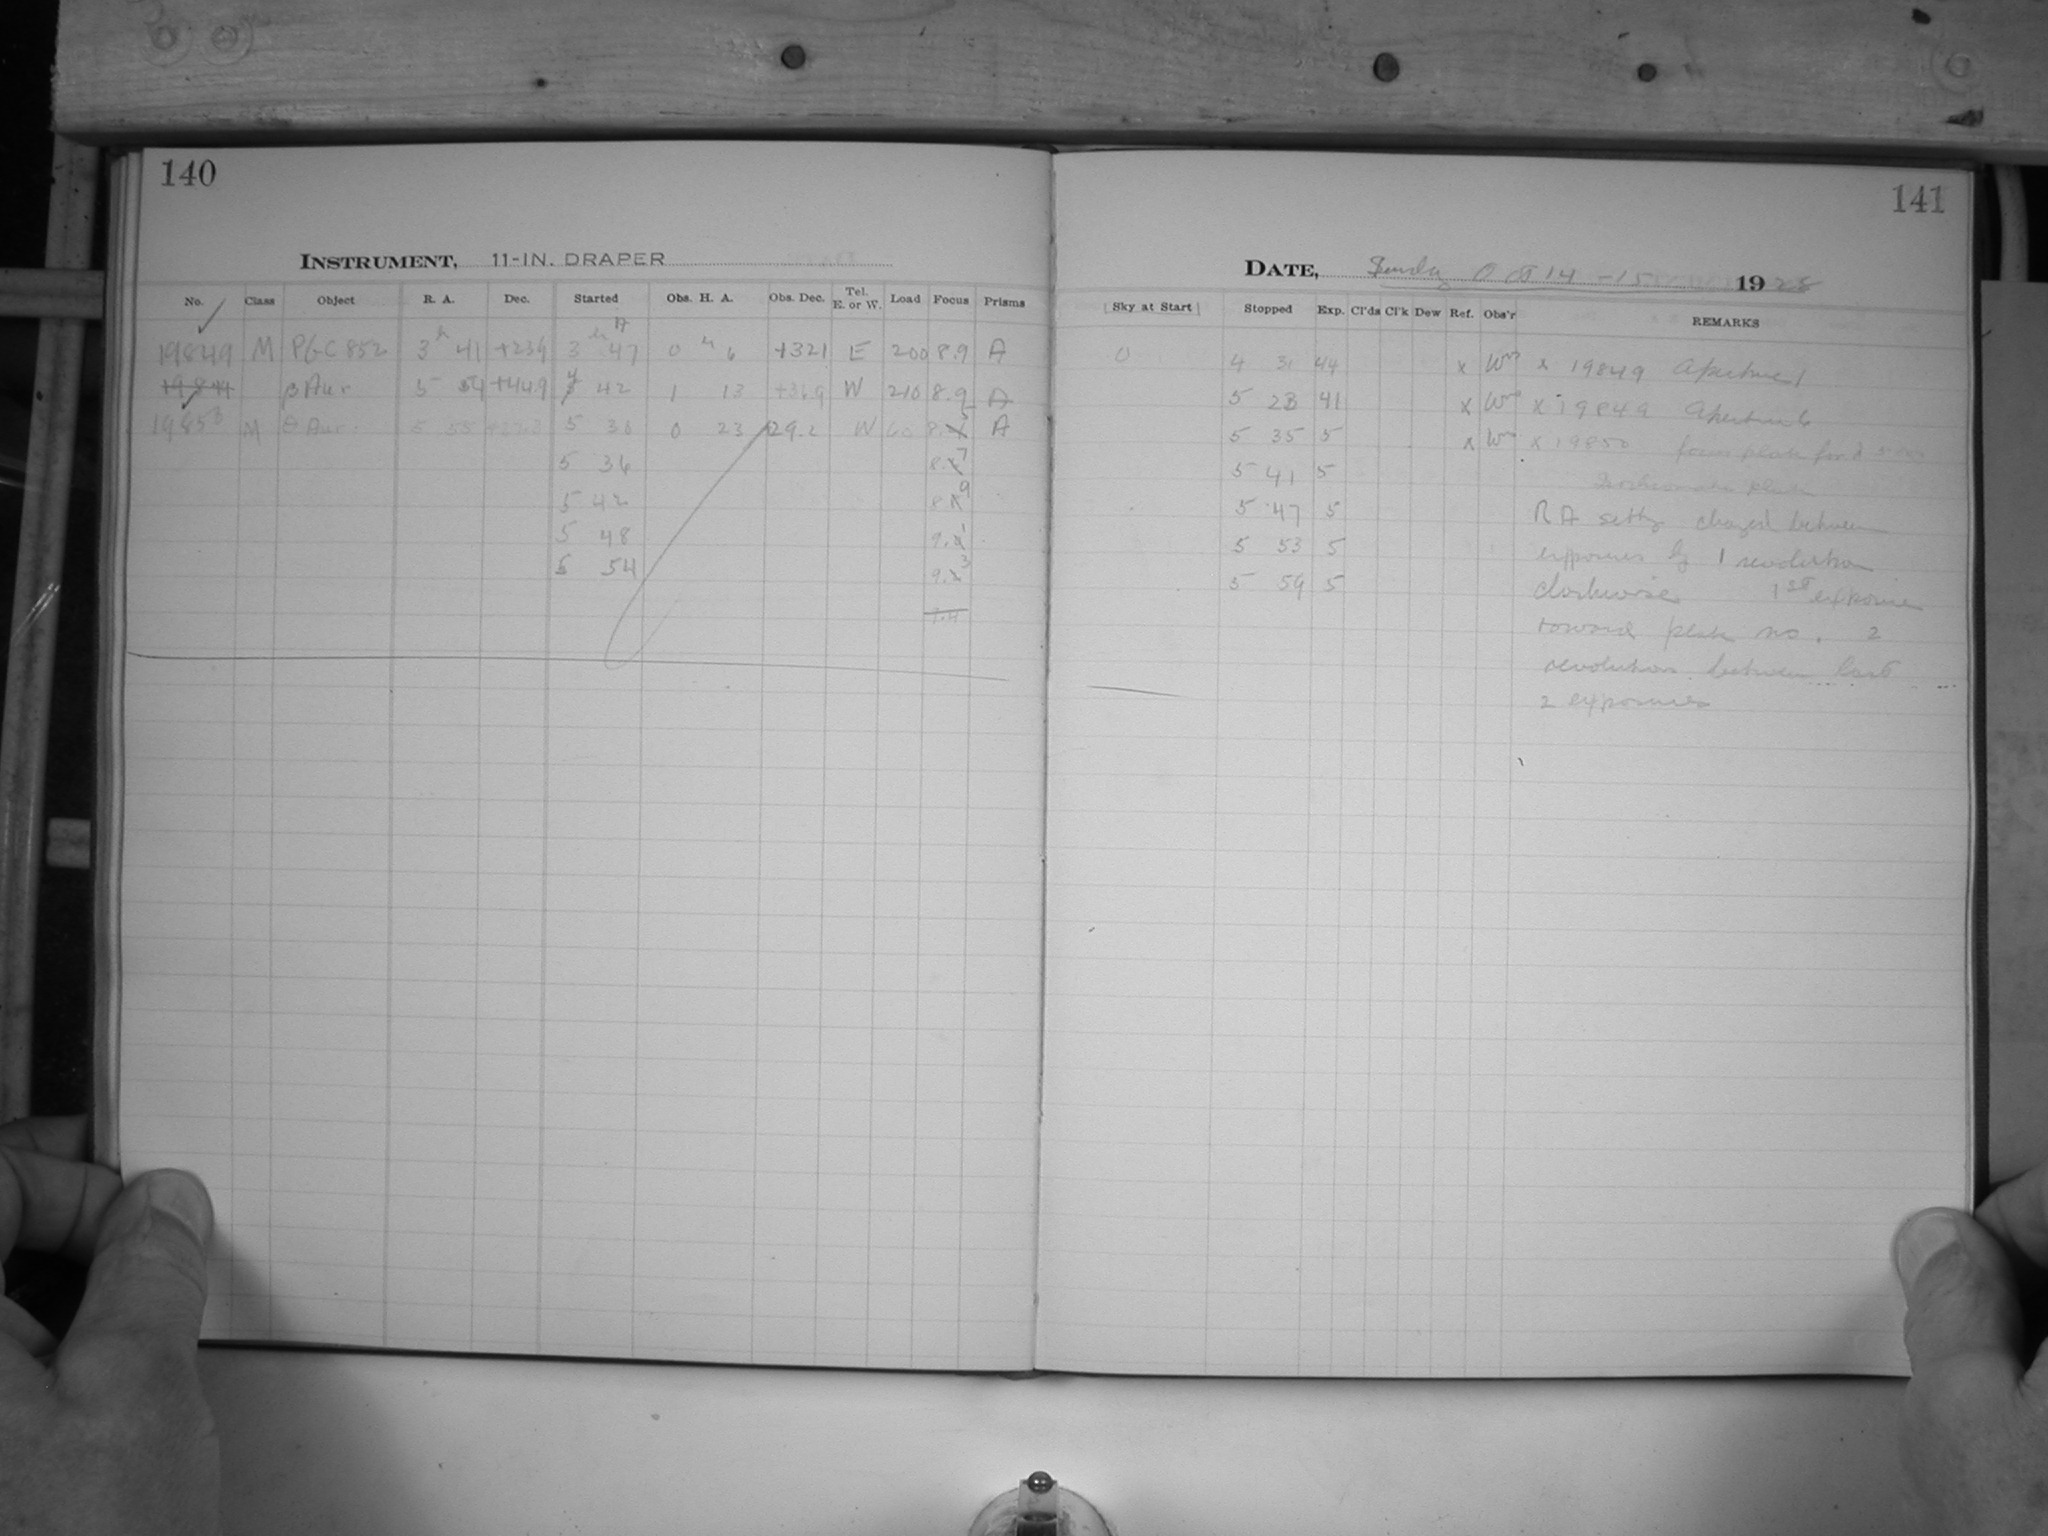 140
INSTRUMENT, 11-IN. DRAPER
No. Class Object R. A. Dec. Started Obs. H. A. Obs. Dec. Tel. E. or W. Load Focus Prisms
19849 M PGC 852 3h 41 +239 3h 47 0h 6 +321 E 200 8.9 A
β Aur. 5 54 +449 4 42 1 13 +369 W 210 8.9 A
M θ Aur. 5 55 5 30 0 23 29.2 W 60 8.5 A
5 36 8.7
5 42 8.9
5 48 9.1
5 54 9.3
141
DATE, Sunday Oct 14-15 1928
Sky at Start Stopped Exp. Cl'ds Cl'k Dew Ref. Obs'r REMARKS
0 4 31 44 x Wm x 19849 Aperture 1
5 23 41 x Wm x 19849 Aperture 6
5 35 5 x Wm x 19850 focus plate for
5 41 5 plate
5 47 5 RA setting changed between
5 53 5 exposures by 1 revolution
5 59 5 clockwise 1st exposure
toward plate no. 2
revolutions between last
2 exposures